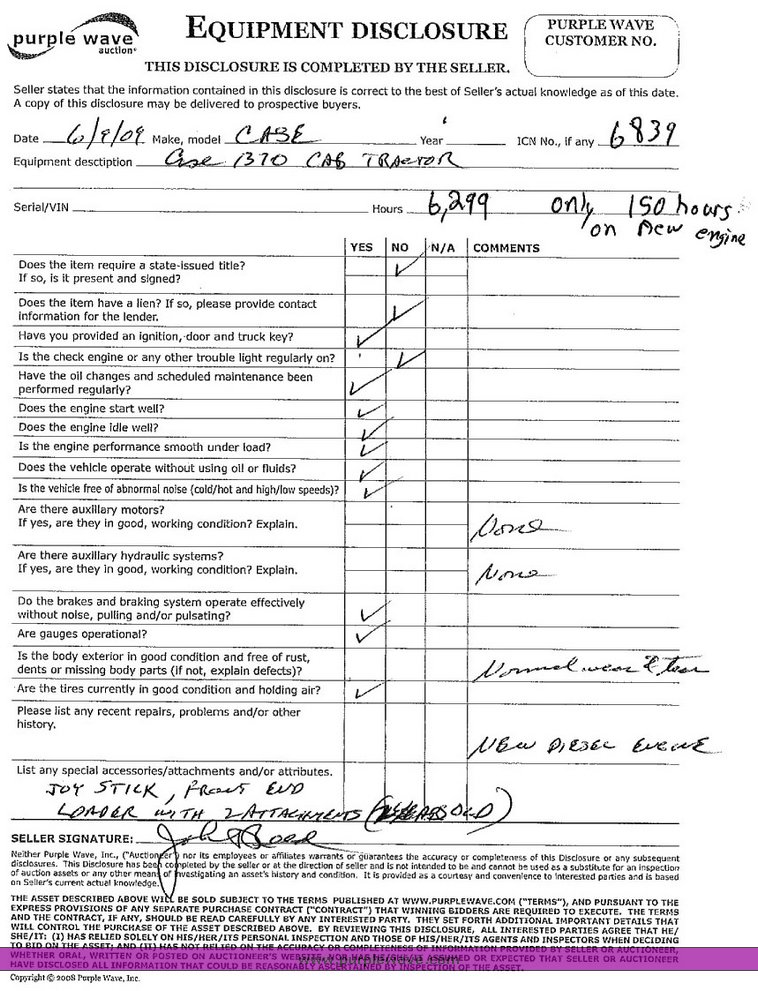 purple wave
auction
EQUIPMENT DISCLOSURE
PURPLE WAVE
CUSTOMER NO.
THIS DISCLOSURE IS COMPLETED BY THE SELLER.
Seller states that the information contained in this disclosure is correct to the best of Seller's actual knowledge as of this date.
A copy of this disclosure may be delivered to prospective buyers.
Date 6/9/09 Make, model CASE Year ICN No., if any 6839
Equipment desctiption Case 1370 CAB TRACTOR
Serial/VIN Hours 6,299 only 150 hours
on new engine
YES NO N/A COMMENTS
Does the item require a state-issued title?
If so, is it present and signed?
Does the item have a lien? If so, please provide contact
information for the lender.
Have you provided an ignition, door and truck key?
Is the check engine or any other trouble light regularly on?
Have the oil changes and scheduled maintenance been
performed regularly?
Does the engine start well?
Does the engine idle well?
Is the engine performance smooth under load?
Does the vehicle operate without using oil or fluids?
Is the vehicle free of abnormal noise (cold/hot and high/low speeds)?
Are there auxiliary motors?
If yes, are they in good, working condition? Explain. None
Are there auxiliary hydraulic systems?
If yes, are they in good, working condition? Explain. None
Do the brakes and braking system operate effectively
without noise, pulling and/or pulsating?
Are gauges operational?
Is the body exterior in good condition and free of rust,
dents or missing body parts (if not, explain defects)? Normal wear & tear
Are the tires currently in good condition and holding air?
Please list any recent repairs, problems and/or other
history.
NEW DIESEL ENGINE
List any special accessories/attachments and/or attributes.
JOY STICK, FRONT END
LOADER WITH 2 ATTACHMENTS OLD)
SELLER SIGNATURE:
Neither Purple Wave, Inc., ("Auctioneer") nor its employees or affiliates warrants or guarantees the accuracy or completeness of this Disclosure or any subsequent
disclosures. This Disclosure has been completed by the seller or at the direction of seller and is not intended to be and cannot be used as a substitute for an inspection
of auction assets or any other means of investigating an asset's history and condition. It is provided as a courtesy and convenience to interested parties and is based
on Seller's current actual knowledge.
THE ASSET DESCRIBED ABOVE WILL BE SOLD SUBJECT TO THE TERMS PUBLISHED AT WWW.PURPLEWAVE.COM ("TERMS"), AND PURSUANT TO THE
EXPRESS PROVISIONS OF ANY SEPARATE PURCHASE CONTRACT ("CONTRACT") THAT WINNING BIDDERS ARE REQUIRED TO EXECUTE. THE TERMS
AND THE CONTRACT, IF ANY, SHOULD BE READ CAREFULLY BY ANY INTERESTED PARTY. THEY SET FORTH ADDITIONAL IMPORTANT DETAILS THAT
WILL CONTROL THE PURCHASE OF THE ASSET DESCRIBED ABOVE. BY REVIEWING THIS DISCLOSURE, ALL INTERESTED PARTIES AGREE THAT HE/
SHE/IT: (I) HAS RELIED SOLELY ON HIS/HER/ITS PERSONAL INSPECTION AND THOSE OF HIS/HER/ITS AGENTS AND INSPECTORS WHEN DECIDING
TO BID ON THE ASSET; AND (II) HAS NOT RELIED ON THE ACCURACY OR COMPLETENESS OF INFORMATION PROVIDED BY SELLER OR AUCTIONEER,
WHETHER ORAL, WRITTEN OR POSTED ON AUCTIONEER'S WEBSITE, NOR HAS HE/SHE/IT ASSUMED OR EXPECTED THAT SELLER OR AUCTIONEER
HAVE DISCLOSED ALL INFORMATION THAT COULD BE REASONABLY ASCERTAINED BY INSPECTION OF THE ASSET.
www.purplewave.com
Copyright © 2008 Purple Wave, Inc.